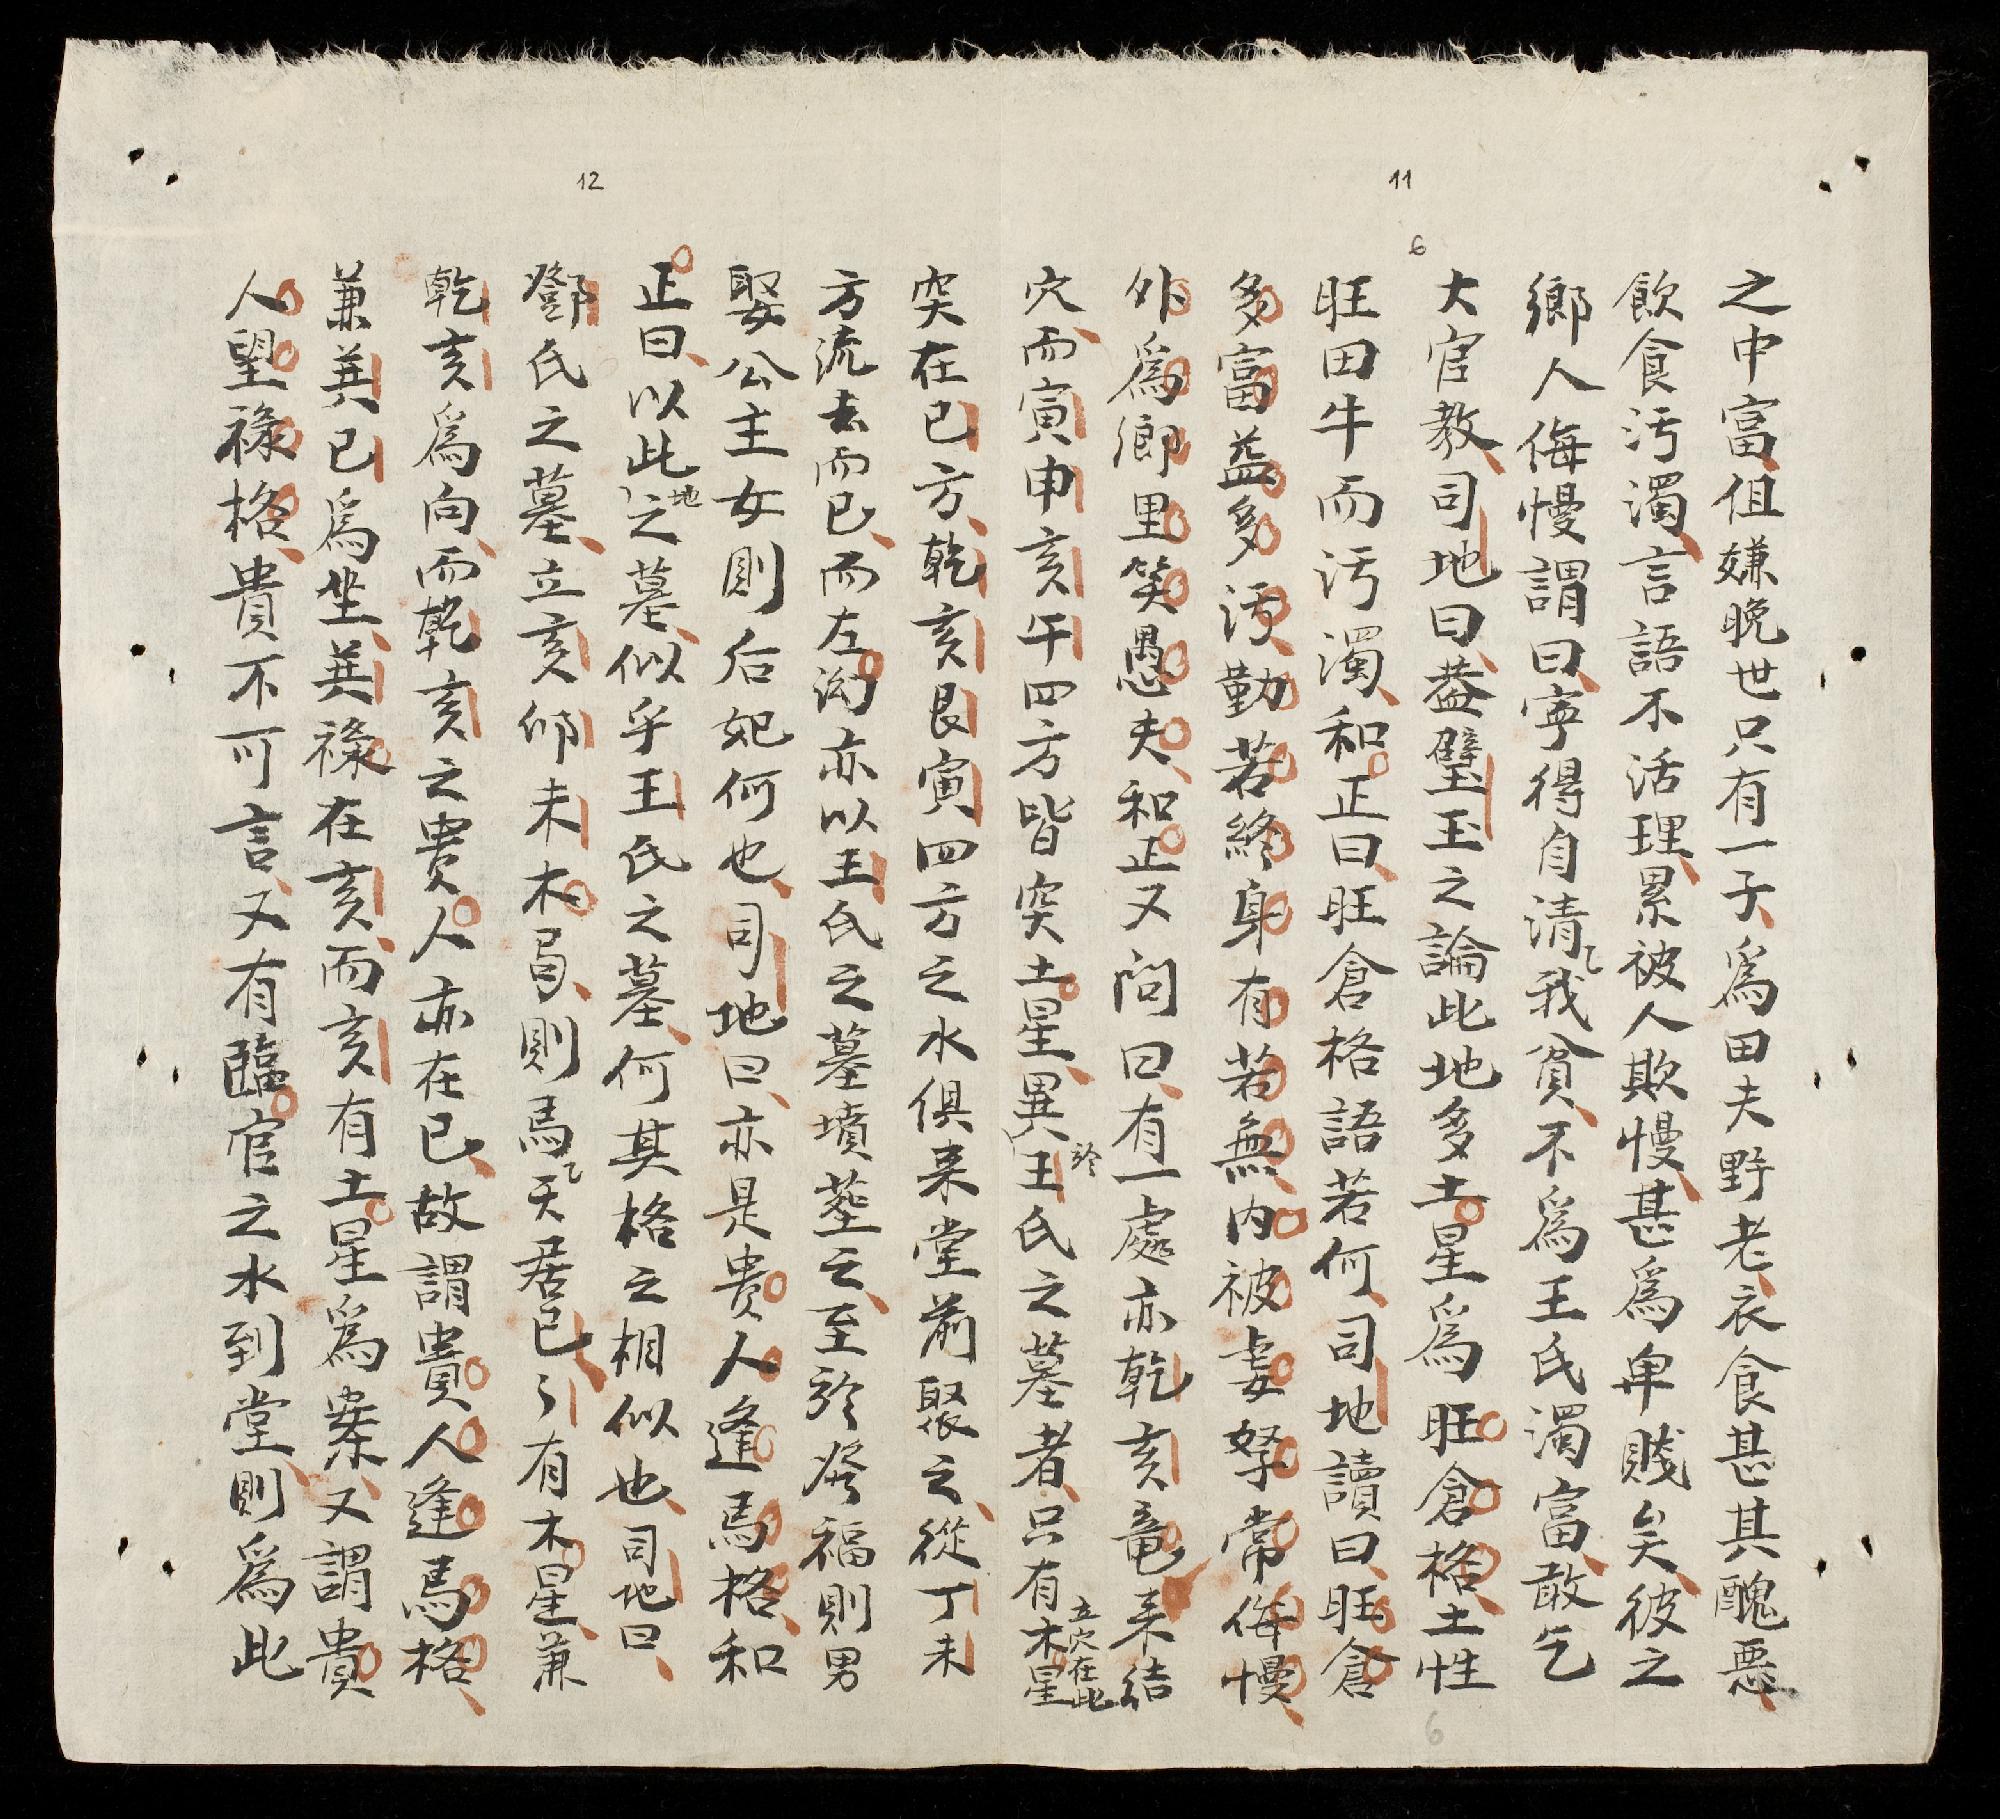 11
6
之中富但嫌晚世只有一子爲田夫野老衣食甚其醜惡
飲食污濁言語不活理累被人欺慢甚爲卑賤矣彼之
鄉人侮慢謂曰寧得自清我貧不爲王氏濁富敢乞
大官教司地曰葢璧玉之論此地多土星爲旺倉格土性
旺田牛而污濁和正曰旺倉格語若何司地讀曰旺倉
多富益多污勤若終身有若無內被妻孥常侮慢
外爲鄉里笑愚夫和正又问曰有一處亦乾亥竜来結
穴而寅申亥午四方皆突土星異於王氏之墓者只有木星立穴在此
12
突在巳方乾亥艮寅四方之水俱来堂前聚之從丁未
方流去而巳而左沟亦以王氏之墓墳葬之至於發福則男
娶公主女則后妃何也司地曰亦是貴人逢馬格和
正曰以此地之墓似乎王氏之墓何其格之相似也司地曰
鄧氏之墓立亥卯未木局則馬天居巳〻有木星兼
乾亥爲向而乾亥之貴人亦在巳故謂貴人逢馬格
兼巽巳爲坐巽祿在亥而亥有土星爲案又謂貴
人望祿格貴不可言又有臨官之水到堂則爲此
6